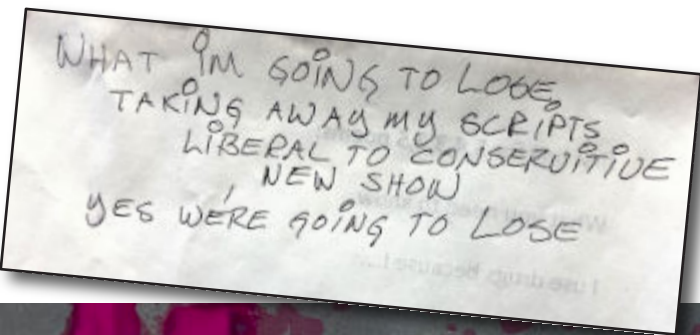 WHAT IM GOING TO LOSE
TAKING AWAY MY SCRIPTS
LIBERAL TO CONSERVITIVE
NEW SHOW
YES WE'RE GOING TO LOSE
I use drugs because I...